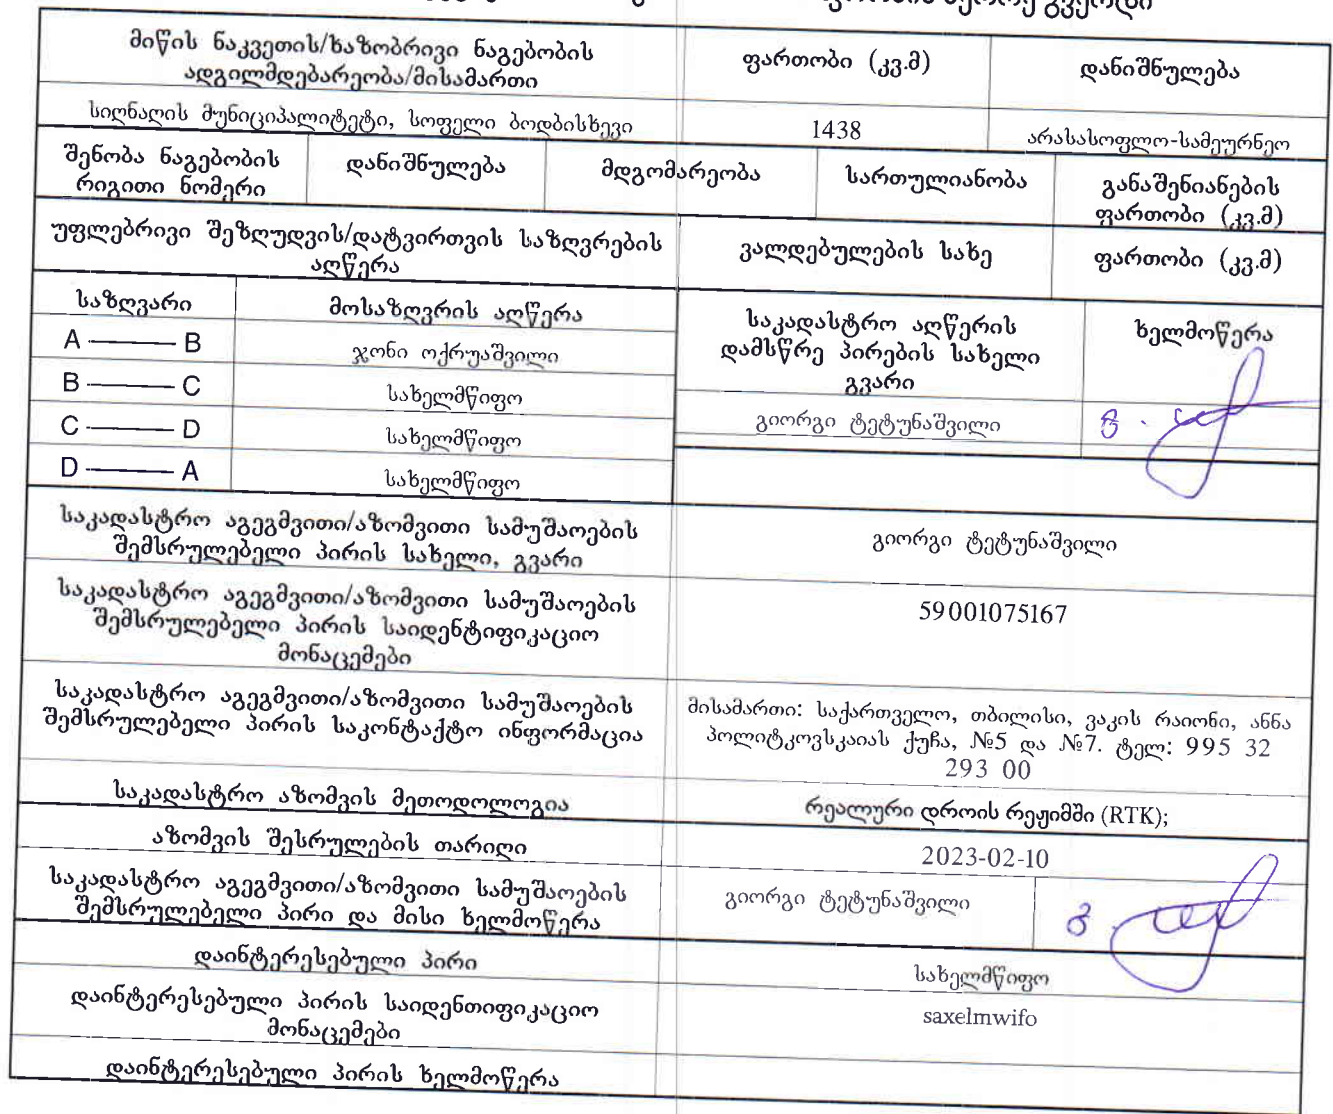 მიწის ნაკვეთის/ხაზობრივი ნაგებობის
ადგილმდებარეობა/მისამართი
ფართობი (კვ.მ)
დანიშნულება
სიღნაღის მუნიციპალიტეტი, სოფელი ბოდბისხევი
1438
არასასოფლო-სამეურნეო
შენობა ნაგებობის
რიგითი ნომერი
დანიშნულება
მდგომარეობა
სართულიანობა
განაშენიანების
ფართობი (კვ.მ)
უფლებრივი შეზღუდვის/დატვირთვის საზღვრების
აღწერა
ვალდებულების სახე
ფართობი (კვ.მ)
საზღვარი
მოსაზღვრის აღწერა
საკადასტრო აღწერის
დამსწრე პირების სახელი
გვარი
ხელმოწერა
A ——— B
ჯონი ოქრუაშვილი
B ——— C
სახელმწიფო
C ——— D
სახელმწიფო
გიორგი ტეტუნაშვილი
D ——— A
სახელმწიფო
საკადასტრო აგეგმვითი/აზომვითი სამუშაოების
შემსრულებელი პირის სახელი, გვარი
გიორგი ტეტუნაშვილი
საკადასტრო აგეგმვითი/აზომვითი სამუშაოების
შემსრულებელი პირის საიდენტიფიკაციო
მონაცემები
59001075167
საკადასტრო აგეგმვითი/აზომვითი სამუშაოების
შემსრულებელი პირის საკონტაქტო ინფორმაცია
მისამართი: საქართველო, თბილისი, ვაკის რაიონი, ანნა
პოლიტკოვსკაიას ქუჩა, №5 და №7. ტელ: 995 32
293 00
საკადასტრო აზომვის მეთოდოლოგია
რეალური დროის რეჟიმში (RTK);
აზომვის შესრულების თარიღი
2023-02-10
საკადასტრო აგეგმვითი/აზომვითი სამუშაოების
შემსრულებელი პირი და მისი ხელმოწერა
გიორგი ტეტუნაშვილი
დაინტერესებული პირი
სახელმწიფო
დაინტერესებული პირის საიდენთიფიკაციო
მონაცემები
saxelmwifo
დაინტერესებული პირის ხელმოწერა